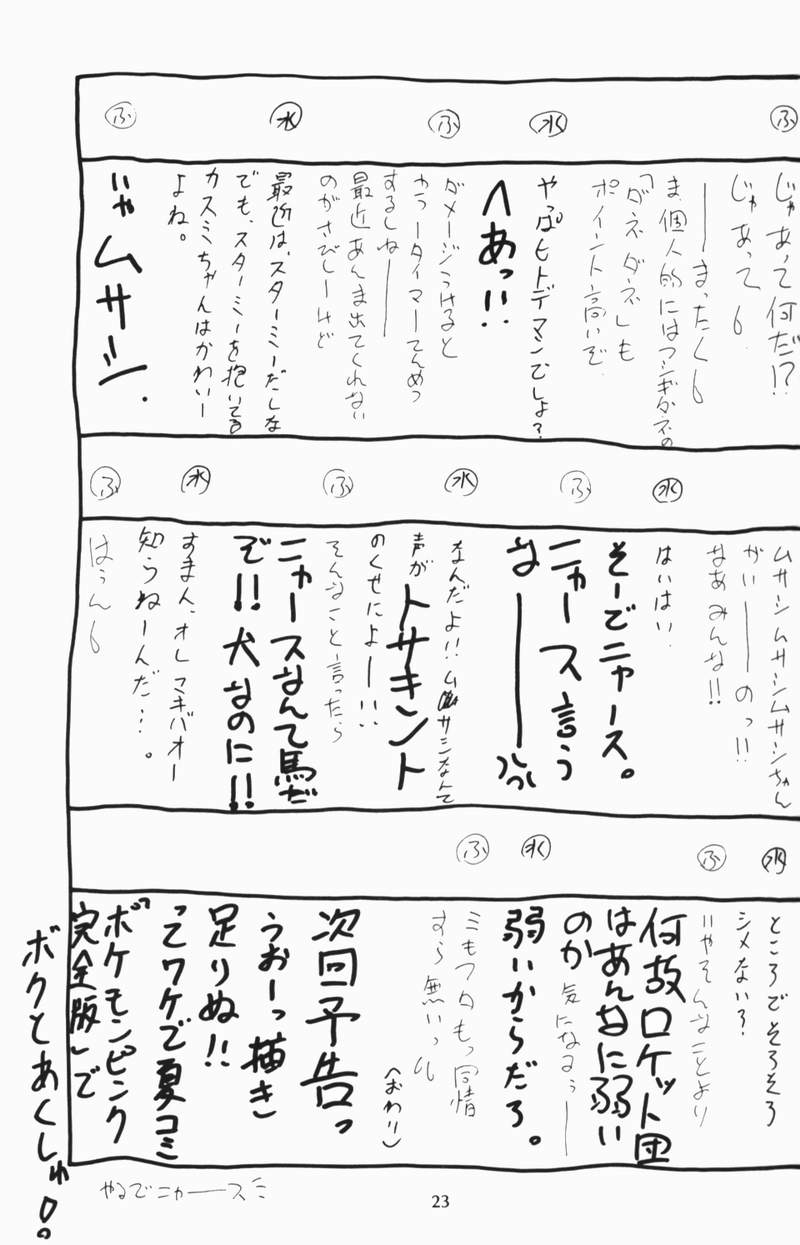 ふ
じゃあって何だ!?
じゃあってよ。
――まったくも
水
ま、個人的にはフシギダネの
「ダネダネ」も
ポイント高いぞ。
やっぱヒトデマンでしょ？
ふ
へあっ!!
ダメージうけると
カラータイマーてんめつ
するしねー
最近あんま出てくれない
のがさびしーけど
水
最近は、スターミーだしな
でも、スターミーを抱いてる
カスミちゃんはかわいー
よね。
ふ
いや ムサシ.
ムサシムサシムサシちゃん
がいーーのっ!!
なあみんな!!
水
はいはい
ふ
そーでニャース。
水
ニャース言う
なーーっっ
なんだよ!!ムサシなんて
声がトサキント
のくせによーー!!
ふ
そんなこと言ったら
ニャースなんて馬だ
ぞ!!犬なのに!!
水
すまん、オレマキバオー
知らねーんだ…。
ふ
はぅん
水
ところでそろそろ
シメない？
ふ
いやそんなことより
何故ロケット団
はあんなに弱い
のか気になるぅ――
水
弱いからだろ。
ふ
ミもフタもっ同情
すら無いっ
(おわり)
次回予告っ
うおーっ描き
足りぬ!!
ってワケで夏コミ
「ポケモンピンク
完全版」で
ボクとあくしゅ!。
やるでニャースミ
23